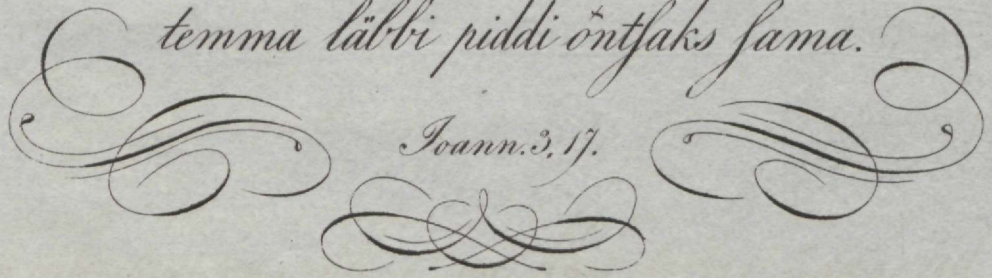 temma läbbi piddi öntſaks ſama.
Joann. 3, 17.